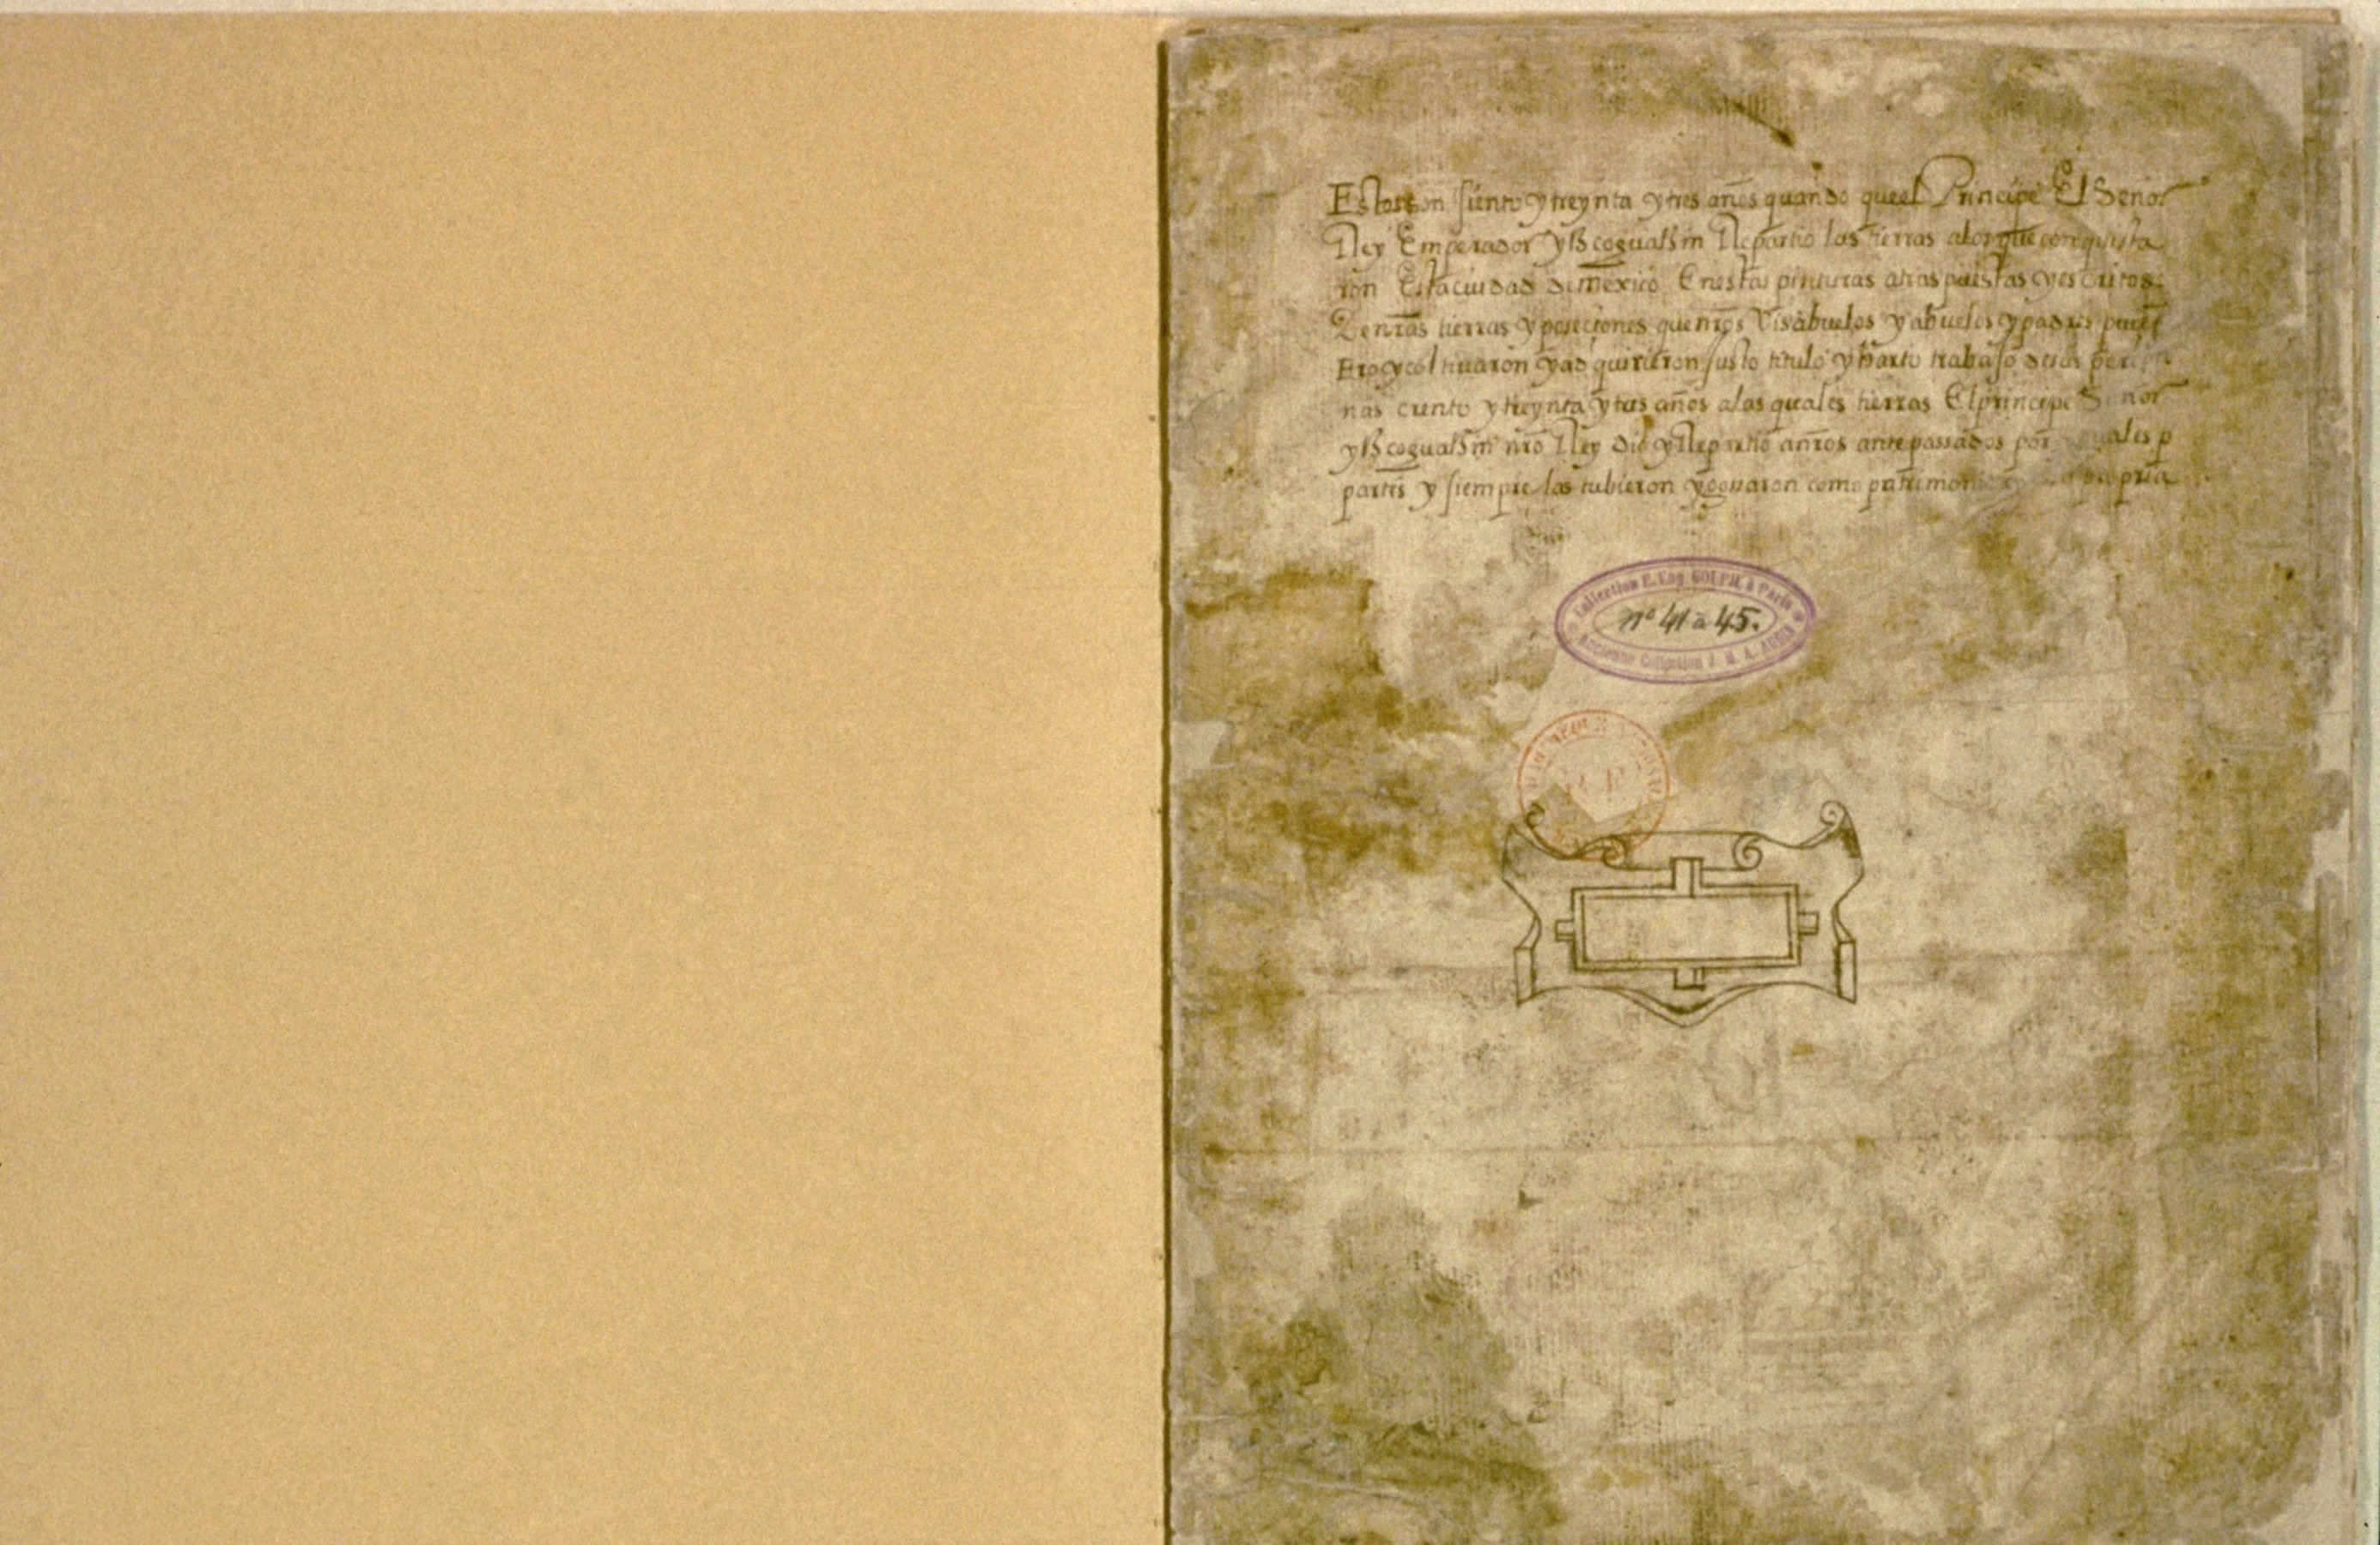 Estos son siento y treynta y tres años quando que el Principe El Señor
Rey Emperador yts coguatsin Repartio las tierras alos que conquista
ron Esta ciudad de mexico En estas pinturas atras puestas y escritos
De nr̃as tierras y poseciones que nr̃os Visabuelos y abuelos y padres
y coltiuaron y ad quirieron Justo titulo y harto trabajo de sus
nas ciento y treynta y tres años a las quales tierras El principe
yts coguatsin nr̃o Rey dio y Repartio anr̃os ante passados por p
partes y siempre las tubieron y gossaron como patrimonio pria
Collection E. Eug. GOUPIL à Paris
nº 41 à 45.
Ancienne Collection J. M. A. AUBIN